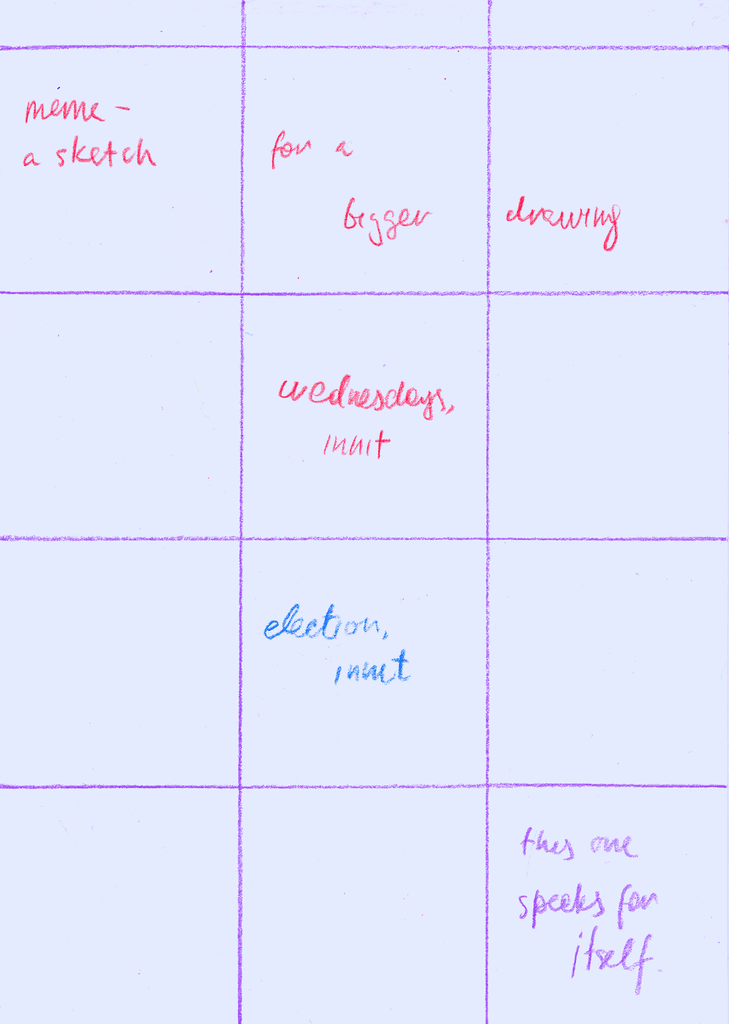 meme -
a sketch
for a
bigger
drawing
wednesdays,
innit
election,
innit
this one
speaks for
itself